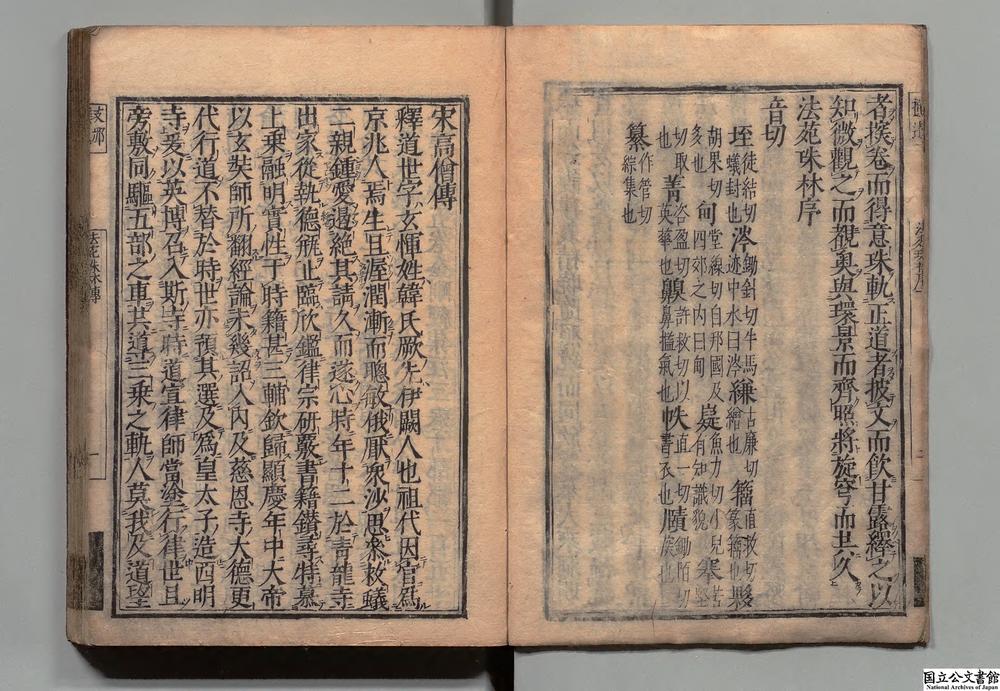 者撰卷而得意珠軌正道者披文而飲甘露繹之以
知微觀之而覩奧與環景而齊照將旋穹而共久
法苑珠林序
音切
垤徒結切蟻封也涔鋤針切牛馬迹中水曰涔縑古廉切繒也籀直救切篆籀也夥
胡果切多也甸堂練切自邦國及四郊之内曰甸嶷魚力切小兒有知識貌搴苦堅
切取也菁咨盈切英華也齅許救切以鼻搵氣也帙直一切書衣也賾鋤陌切也
纂作管切綜集也
宋高僧傳
釋道世字玄惲姓韓氏厥先伊闕人也祖代因官爲
京兆人焉生且渥潤漸而聰敏俄厭衆沙思叅救蟻
二親鍾愛遏絕其請久而遂心時年十二於青龍寺
出家從執德瓶止臨欣鑑律宗研覈書籍鑽尋特慕
上乘融明實性于時籍甚三輔欽歸顯慶年中大帝
以玄奘師所翻經論未幾詔入內及慈恩寺大德更
代行道不替於時世亦預其選及爲皇太子造西明
寺爰以英博召入斯寺時道宣律師當塗行律世且
旁敷同驅五部之車共導三乘之軌人莫我及道望
支那
法苑珠林傳
一
国立公文書館
National Archives of Japan